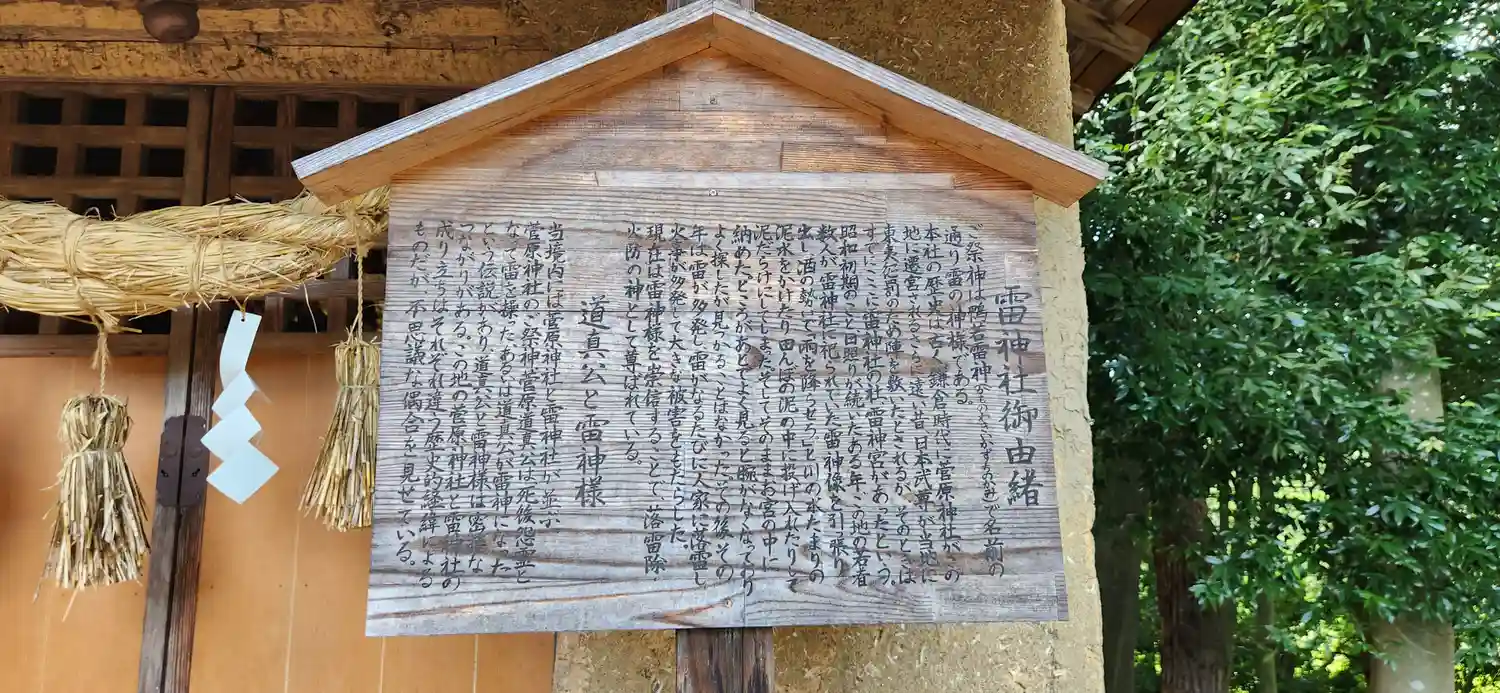 雷神社御由緒
ご祭神は鴨若雷神(かものわけいかずちのかみ)で名前の
通り雷の神様である。
本社の歴史は古く、鎌倉時代に菅原神社がこの
地に遷宮されるさらに遠い昔、日本武尊が当地に
東夷征罰のため陣を敷いたとされるが、そのときは
すでにここに雷神社の社、雷神宮があったという。
昭和初期のこと、日照りが続いたある年、この地の若者
数人が雷神社に祀られていた雷神像を引っ張り
出し、酒の勢いで「雨を降らせろ」といの本たまりの
泥水をかけたり、田んぼの泥の中に投げ入れたりして
泥だらけにしてしまった。そしてそのままお宮の中に
納めた。ところがあとでよく見ると腕がなくなっており
よく探したが見つかることはなかった。いての後、その
年は雷が多発し、雷がなるたびに人家に落雷し
火事が多発して大きな被害をもたらした。
現在は雷神様を崇信することで、落雷除
火防の神として尊ばれている。
道真公と雷神様
当境内には菅原神社と雷神社が並ぶ
菅原神社のご祭神菅原道真公は死後怨霊と
なって雷を操ったあるいは道真公が雷神になった
という伝説があり、道真公と雷神様は密接な
つながりがある。この地の菅原神社と雷神社の
成り立ちはそれぞれ違う歴史的経緯による
ものだが、不思議な偶合を見せている。